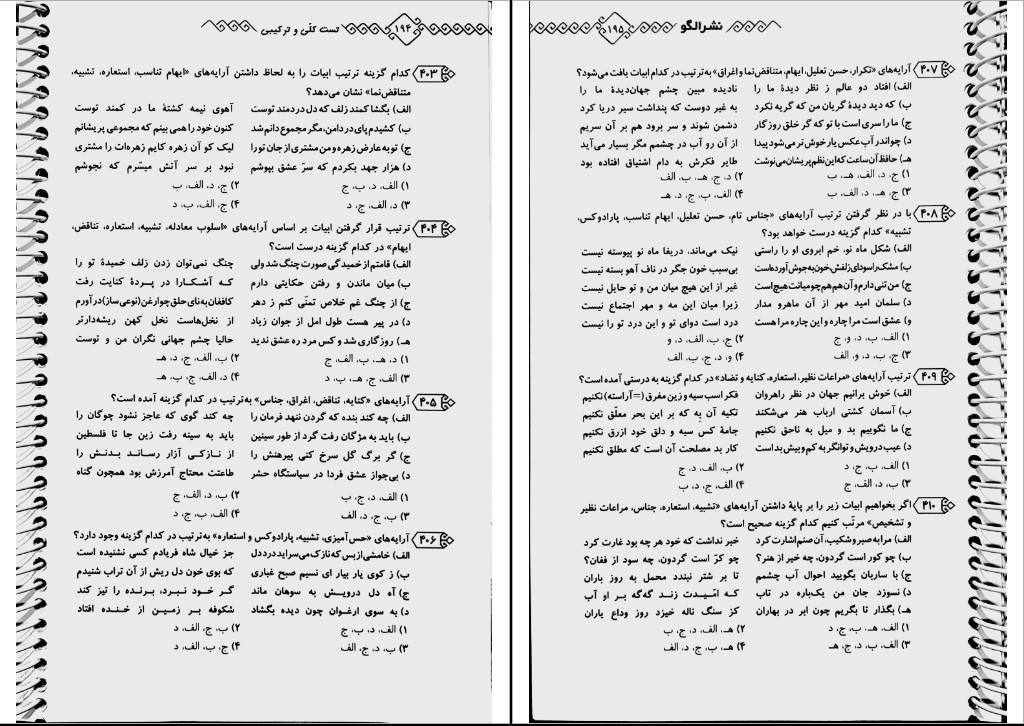 نشر الگو
۱۹۵
۴۰۷ آرایه‌های «تکرار، حسن تعلیل، ایهام، متناقض‌نما و اغراق» به‌ترتیب در کدام ابیات یافت می‌شود؟
الف) افتاد دو عالم ز نظر دیدهٔ ما را نادیده مبین چشم جهان‌دیدهٔ ما را
ب) که دید دیدهٔ گریان من که گریه نکرد به غیر دوست که پنداشت سیر دریا کرد
ج) ما را سری است با تو که گر خلق روزگار دشمن شوند و سر برود هم بر آن سریم
د) چو اندر آب عکس یار خوش‌تر می‌شود پیدا از آن رو آب در چشمم مگر بسیار می‌آید
هـ) حافظ آن ساعت که این نظم پریشان می‌نوشت طایر فکرش به دام اشتیاق افتاده بود
۱) ج، د، الف، هـ، ب ۲) د، ج، هـ، ب، الف
۳) ج، هـ، د، الف، ب ۴) الف، ب، ج، د، هـ
۴۰۸ با در نظر گرفتن ترتیب آرایه‌های «جناس تام، حسن تعلیل، ایهام تناسب، پارادوکس،
تشبیه» کدام گزینه درست خواهد بود؟
الف) شکل ماه نو، خم ابروی او را راستی نیک می‌ماند، دریغا ماه نو پیوسته نیست
ب) مشک را سودای زلفش، خون به جوش آورده است بی‌سبب خون جگر در ناف آهو بسته نیست
ج) من تنی دارم و آن هم هم‌چو میانت هیچ است غیر از این هیچ میان من و تو حایل نیست
د) سلمان امید مهر از آن ماهرو مدار زیرا میان این مه و مهر اجتماع نیست
و) عشق است مرا چاره و این چاره مرا هست درد است دوای تو و این درد تو را نیست
۱) الف، ب، د، و، ج ۲) ج، ب، الف، د، و
۳) ج، ب، د، و، الف ۴) و، د، ج، ب، الف
۴۰۹ ترتیب آرایه‌های «مراعات نظیر، استعاره، کنایه و تضاد» در کدام گزینه به درستی آمده است؟
الف) خوش برانیم جهان در نظر راهروان فکر اسب سیه و زین مغرق (=آراسته) نکنیم
ب) آسمان کشتی ارباب هنر می‌شکند تکیه آن به که بر این بحر معلّق نکنیم
ج) ما نگوییم بد و میل به ناحق نکنیم جامهٔ کس سیه و دلق خود ازرق نکنیم
د) عیب درویش و توانگر به کم و بیش بد است کار بد مصلحت آن است که مطلق نکنیم
۱) الف، ب، ج، د ۲) ب، الف، د، ج
۳) ب، د، الف، ج ۴) الف، ج، د، ب
۴۱۰ اگر بخواهیم ابیات زیر را بر پایهٔ داشتن آرایه‌های «تشبیه، استعاره، جناس، مراعات نظیر
و تشخیص» مرتّب کنیم کدام گزینه صحیح است؟
الف) مرا به صبر و شکیب، آن صنم اشارت کرد خبر نداشت که خود هر چه بود غارت کرد
ب) چو کور است گردون، چه خیر از هنر؟ چو کرّ است گردون، چه سود از فغان؟
ج) با ساربان بگویید احوال آب چشمم تا بر شتر نبندد محمل به روز باران
د) نسوزد جان من یک‌باره در تاب که امّیدت زند گه‌گه بر او آب
هـ) بگذار تا بگریم چون ابر در بهاران کز سنگ ناله خیزد روز وداع یاران
۱) الف، هـ، ب، ج، د ۲) هـ، الف، د، ج، ب
۳) الف، ب، د، ج، هـ ۴) هـ، ب، ج، د، الف
۱۹۴
تست کلّی و ترکیبی
۴۰۳ کدام گزینه ترتیب ابیات را به لحاظ داشتن آرایه‌های «ایهام تناسب، استعاره، تشبیه،
متناقض‌نما» نشان می‌دهد؟
الف) بگشا کمند زلف که دل دردمند توست آهوی نیمه کشتهٔ ما در کمند توست
ب) کشیدم پای در دامن، مگر مجموع دانم شد کنون خود را همی بینم که مجموعی پریشانم
ج) تو به عارض زهره و من مشتری از جان تو را لیک کو آن زهره کایم زهره‌ات را مشتری
د) هزار جهد بکردم که سرّ عشق بپوشم نبود بر سر آتش میسّرم که نجوشم
۱) الف، د، ب، ج ۲) ج، د، الف، ب
۳) ب، الف، ج، د ۴) ج، الف، ب، د
۴۰۴ ترتیب قرار گرفتن ابیات بر اساس آرایه‌های «اسلوب معادله، تشبیه، استعاره، تناقض،
ایهام» در کدام گزینه درست است؟
الف) قامتم از خمیدگی صورت چنگ شد ولی چنگ نمی‌توان زدن زلف خمیدهٔ تو را
ب) میان ماندن و رفتن حکایتی دارم که آشکارا در پردهٔ کنایت رفت
ج) از چنگ غم خلاص تمنّی کنم ز دهر کافغان به نای حلق چو ارغن (نوعی ساز) درآورم
د) در پیر هست طول امل از جوان زیاد از نخل‌هاست نخل کهن ریشه‌دارتر
هـ) روزگاری شد و کس مرد ره عشق ندید حالیا چشم جهانی نگران من و توست
۱) د، هـ، ب، الف، ج ۲) ب، الف، ج، د، هـ
۳) الف، ج، هـ، ب، د ۴) د، الف، ج، ب، هـ
۴۰۵ آرایه‌های «کنایه، تناقض، اغراق، جناس» به‌ترتیب در کدام گزینه آمده است؟
الف) چه کند بنده که گردن ننهد فرمان را چه کند گوی که عاجز نشود چوگان را
ب) باید به مژگان رفت گرد از طور سینین باید به سینه رفت زین جا تا فلسطین
ج) گر برگ گل سرخ کنی پیرهنش را از نازکی آزار رساند بدنش را
د) بی‌جواز عشق فردا در سیاستگاه حشر طاعتت محتاج آمرزش بود همچون گناه
۱) الف، د، ج، ب ۲) ب، د، الف، ج
۳) ب، ج، د، الف ۴) الف، ب، ج، د
۴۰۶ آرایه‌های «حس‌آمیزی، تشبیه، پارادوکس و استعاره» به‌ترتیب در کدام گزینه وجود دارد؟
الف) خامشی از بس که نازک می‌سراید درد دل جز خیال شاه فریادم کسی نشنیده است
ب) ز کوی یار بیار ای نسیم صبح غباری که بوی خون دل ریش از آن تراب شنیدم
ج) آه دل درویش به سوهان ماند گر خود نبرد، برنده را تیز کند
د) به سوی ارغوان چون دیده بگشاد شکوفه بر زمین از خنده افتاد
۱) الف، د، ب، ج ۲) ب، ج، الف، د
۳) ب، د، ج، الف ۴) ج، ب، الف، د